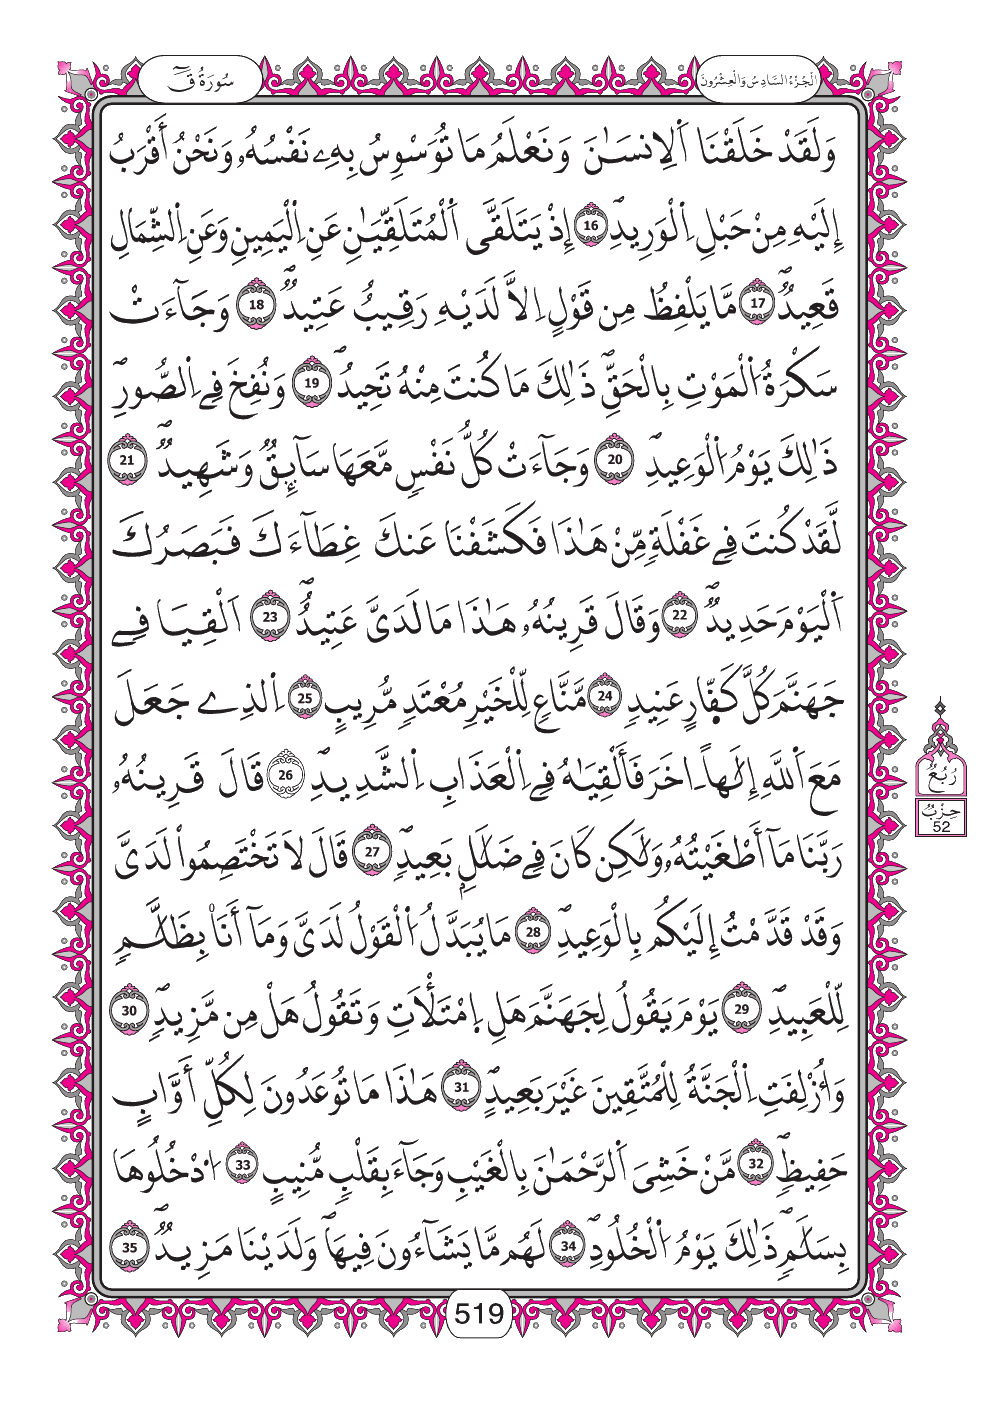 سُورَةُ قٓ
اَلْجُزْءُ السَّادِسُ وَالْعِشْرُونَ
وَلَقَدْ خَلَقْنَا اَ۬لِانسَٰنَ وَنَعْلَمُ مَا تُوَسْوِسُ بِهِۦ نَفْسُهُۥ وَنَحْنُ أَقْرَبُ
إِلَيْهِ مِنْ حَبْلِ اِ۬لْوَرِيدِۖ 16 إِذْ يَتَلَقَّى اَ۬لْمُتَلَقِّيَٰنِ عَنِ اِ۬لْيَمِينِ وَعَنِ اِ۬لشِّمَالِ
قَعِيدٞۖ 17 مَّا يَلْفِظُ مِن قَوْلٍ اِلَّا لَدَيْهِ رَقِيبٌ عَتِيدٞۖ 18 وَجَآءَتْ
سَكْرَةُ اُ۬لْمَوْتِ بِالْحَقِّۖ ذَٰلِكَ مَا كُنتَ مِنْهُ تَحِيدُۖ 19 وَنُفِخَ فِے اِ۬لصُّورِۖ
ذَٰلِكَ يَوْمُ اُ۬لْوَعِيدِۖ 20 وَجَآءَتْ كُلُّ نَفْسٖ مَّعَهَا سَآئِقٞ وَشَهِيدٞۖ 21
لَّقَدْ كُنتَ فِے غَفْلَةٖ مِّنْ هَٰذَا فَكَشَفْنَا عَنكَ غِطَآءَكَ فَبَصَرُكَ
اَ۬لْيَوْمَ حَدِيدٞۖ 22 وَقَالَ قَرِينُهُۥ هَٰذَا مَا لَدَيَّ عَتِيدٌۖ 23 اَلْقِيَا فِے
جَهَنَّمَ كُلَّ كَفّ۪ارٍ عَنِيدٖ 24 مَّنَّاعٖ لِّلْخَيْرِ مُعْتَدٖ مُّرِيبٍ 25 اِ۬لذِے جَعَلَ
مَعَ اَ۬للَّهِ إِلَٰهاً اٰخَرَ فَأَلْقِيَٰهُ فِے اِ۬لْعَذَابِ اِ۬لشَّدِيدِۖ 26 قَالَ قَرِينُهُۥ
رَبَّنَا مَآ أَطْغَيْتُهُۥ وَلَٰكِن كَانَ فِے ضَلَٰلِۢ بَعِيدٖۖ 27 قَالَ لَا تَخْتَصِمُواْ لَدَيَّ
وَقَدْ قَدَّمْتُ إِلَيْكُم بِالْوَعِيدِۖ 28 مَا يُبَدَّلُ اُ۬لْقَوْلُ لَدَيَّ وَمَآ أَنَا۠ بِظَلَّٰمٖ
لِّلْعَبِيدِۖ 29 يَوْمَ يَقُولُ لِجَهَنَّمَ هَلِ اِ۪مْتَلَأْتِ وَتَقُولُ هَلْ مِن مَّزِيدٖۖ 30
وَأُزْلِفَتِ اِ۬لْجَنَّةُ لِلْمُتَّقِينَ غَيْرَ بَعِيدٍۖ 31 هَٰذَا مَا تُوعَدُونَ لِكُلِّ أَوَّابٍ
حَفِيظٖۖ 32 مَّنْ خَشِيَ اَ۬لرَّحْمَٰنَ بِالْغَيْبِ وَجَآءَ بِقَلْبٖ مُّنِيبٍ 33 اُ۟دْخُلُوهَا
بِسَلَٰمٖۖ ذَٰلِكَ يَوْمُ اُ۬لْخُلُودِۖ 34 لَهُم مَّا يَشَآءُونَ فِيهَاۖ وَلَدَيْنَا مَزِيدٞۖ 35
رُبُعُ
حِزْبُ
52
519